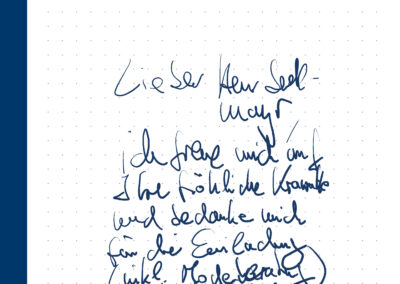 Lieber Herr Seel-
mayr,
ich freue mich auf
Ihre fröhliche
und bedanke mich
für die Einladung
(inkl. Moderation)